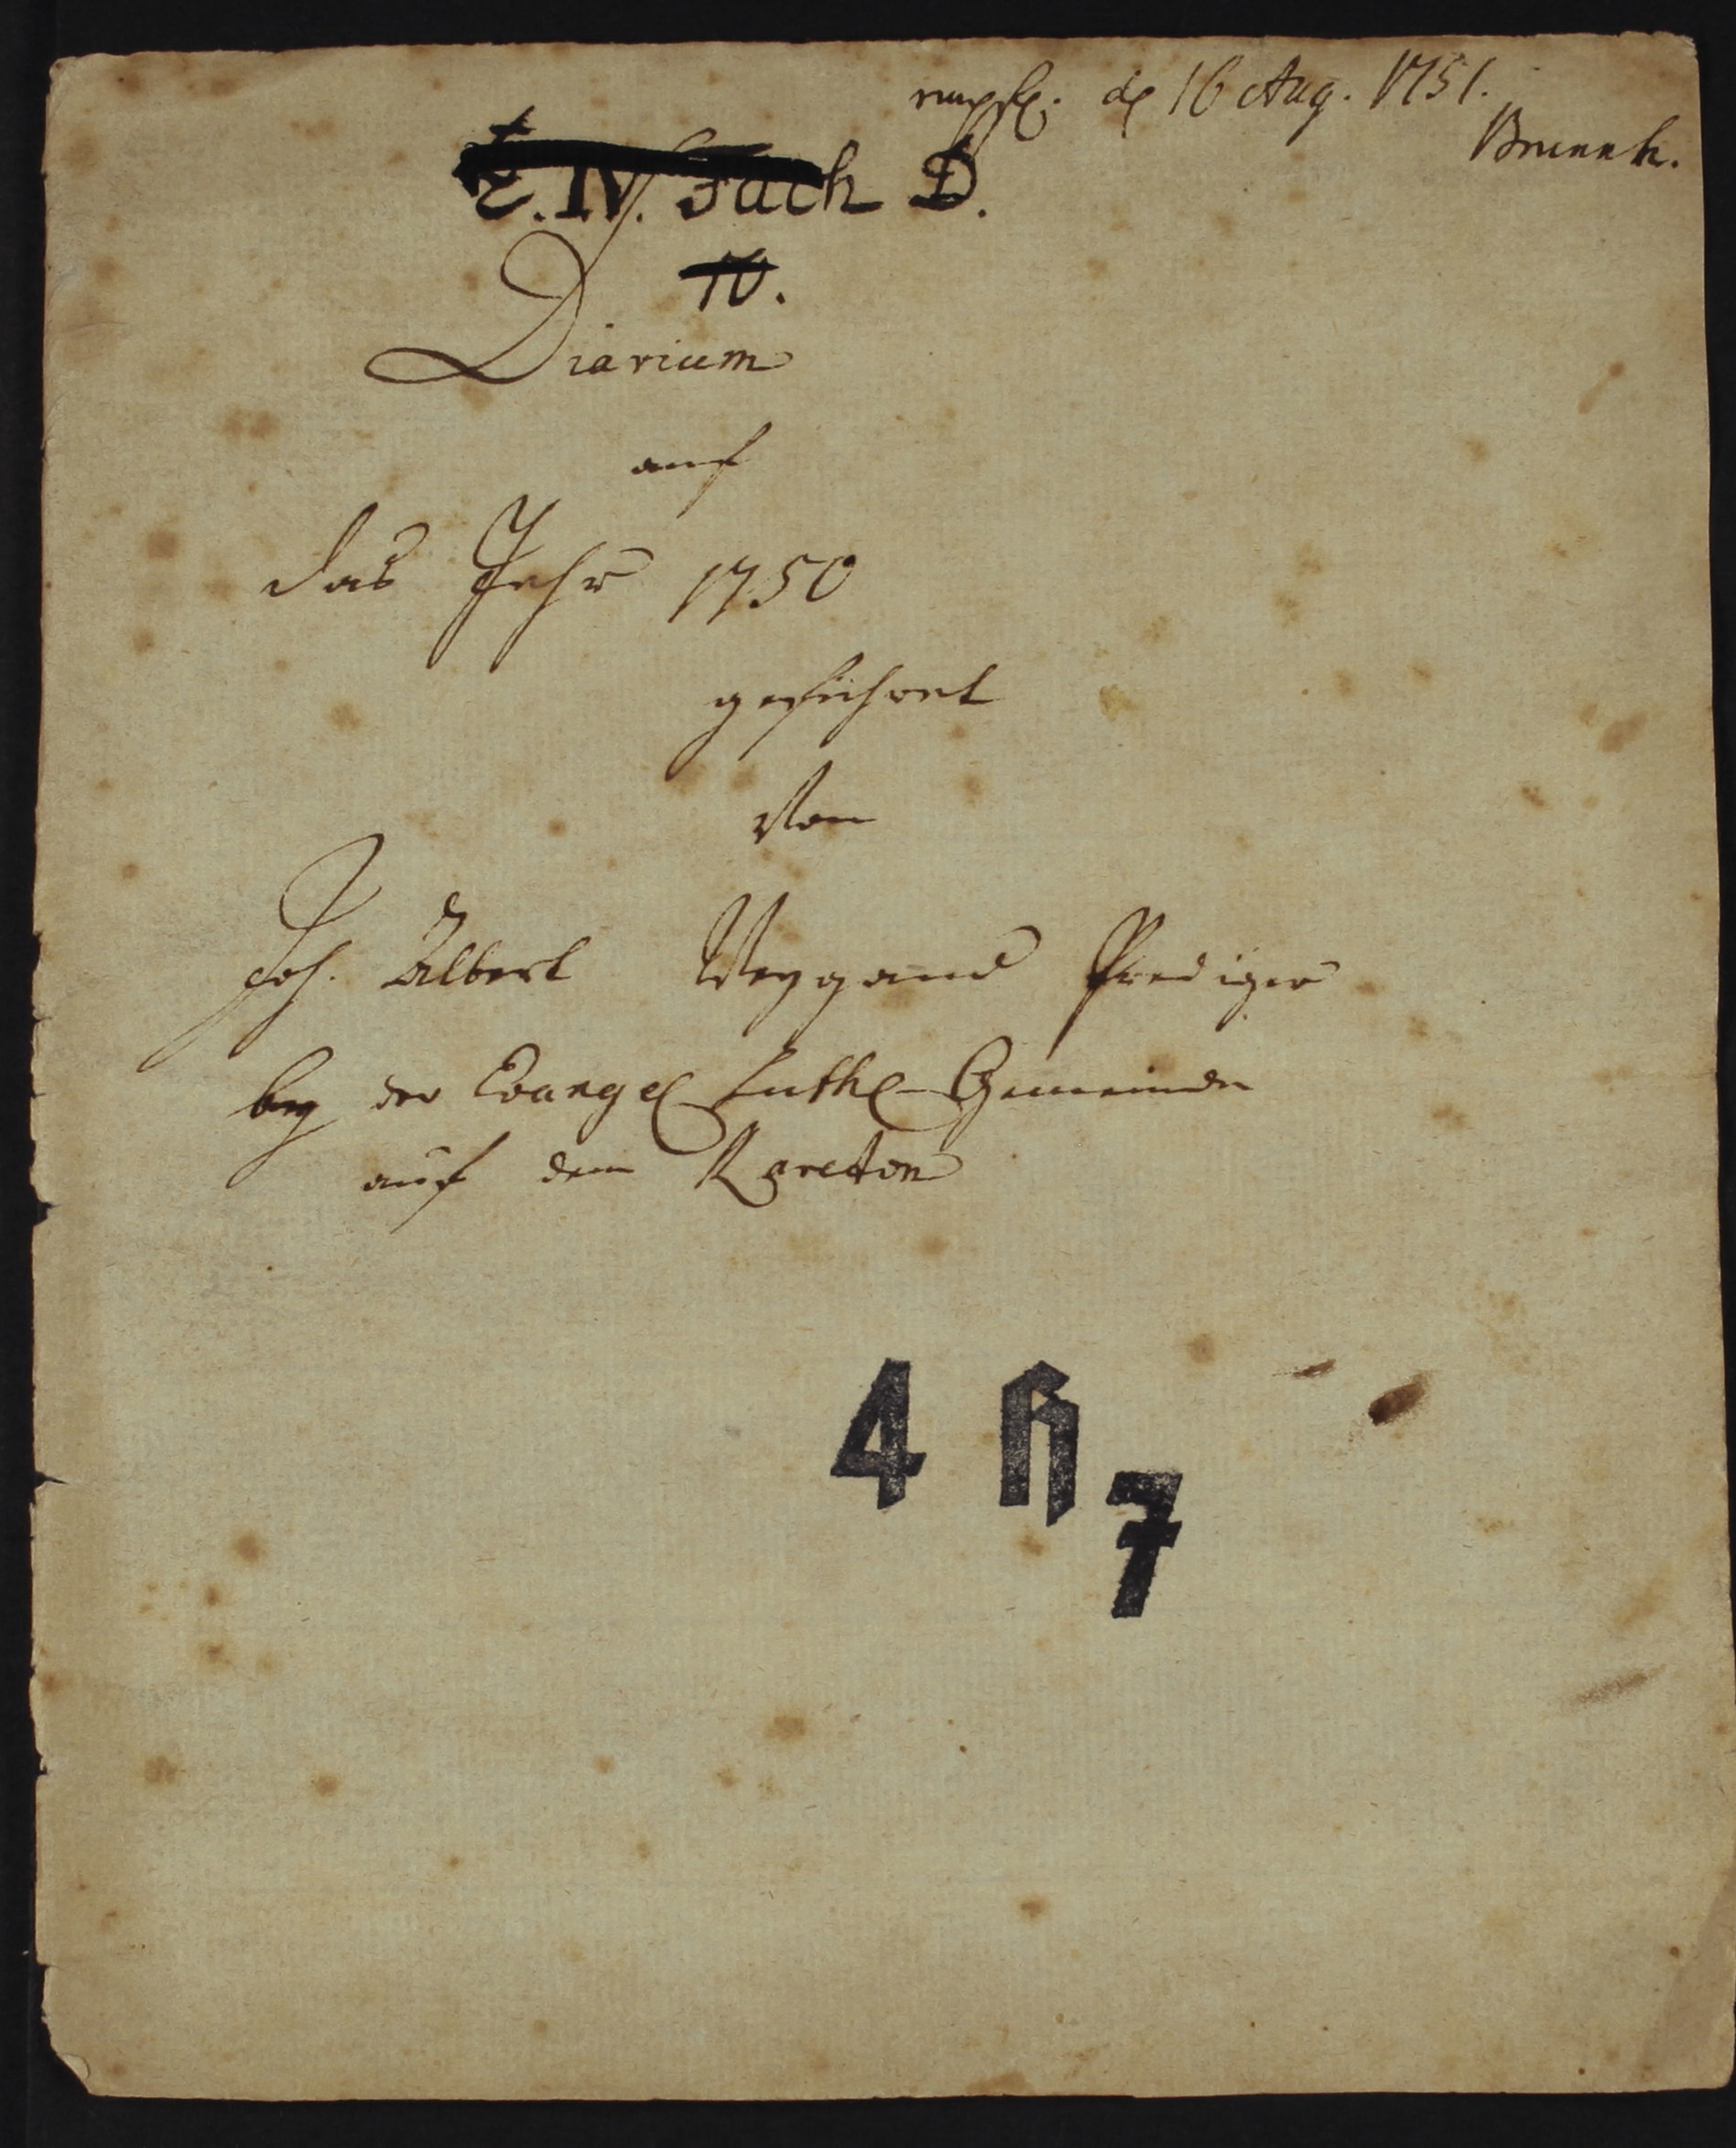 empf. d. 16 Aug. 1751.
Brunnh.
E. IV. Fach D.
IV.
Diarium
auf
das Jahr 1750
geführet
Von
Joh. Albert Weygand Prediger
bey der Evangel. Luthl. Gemeinde
auf dem Raretton
4 H 7